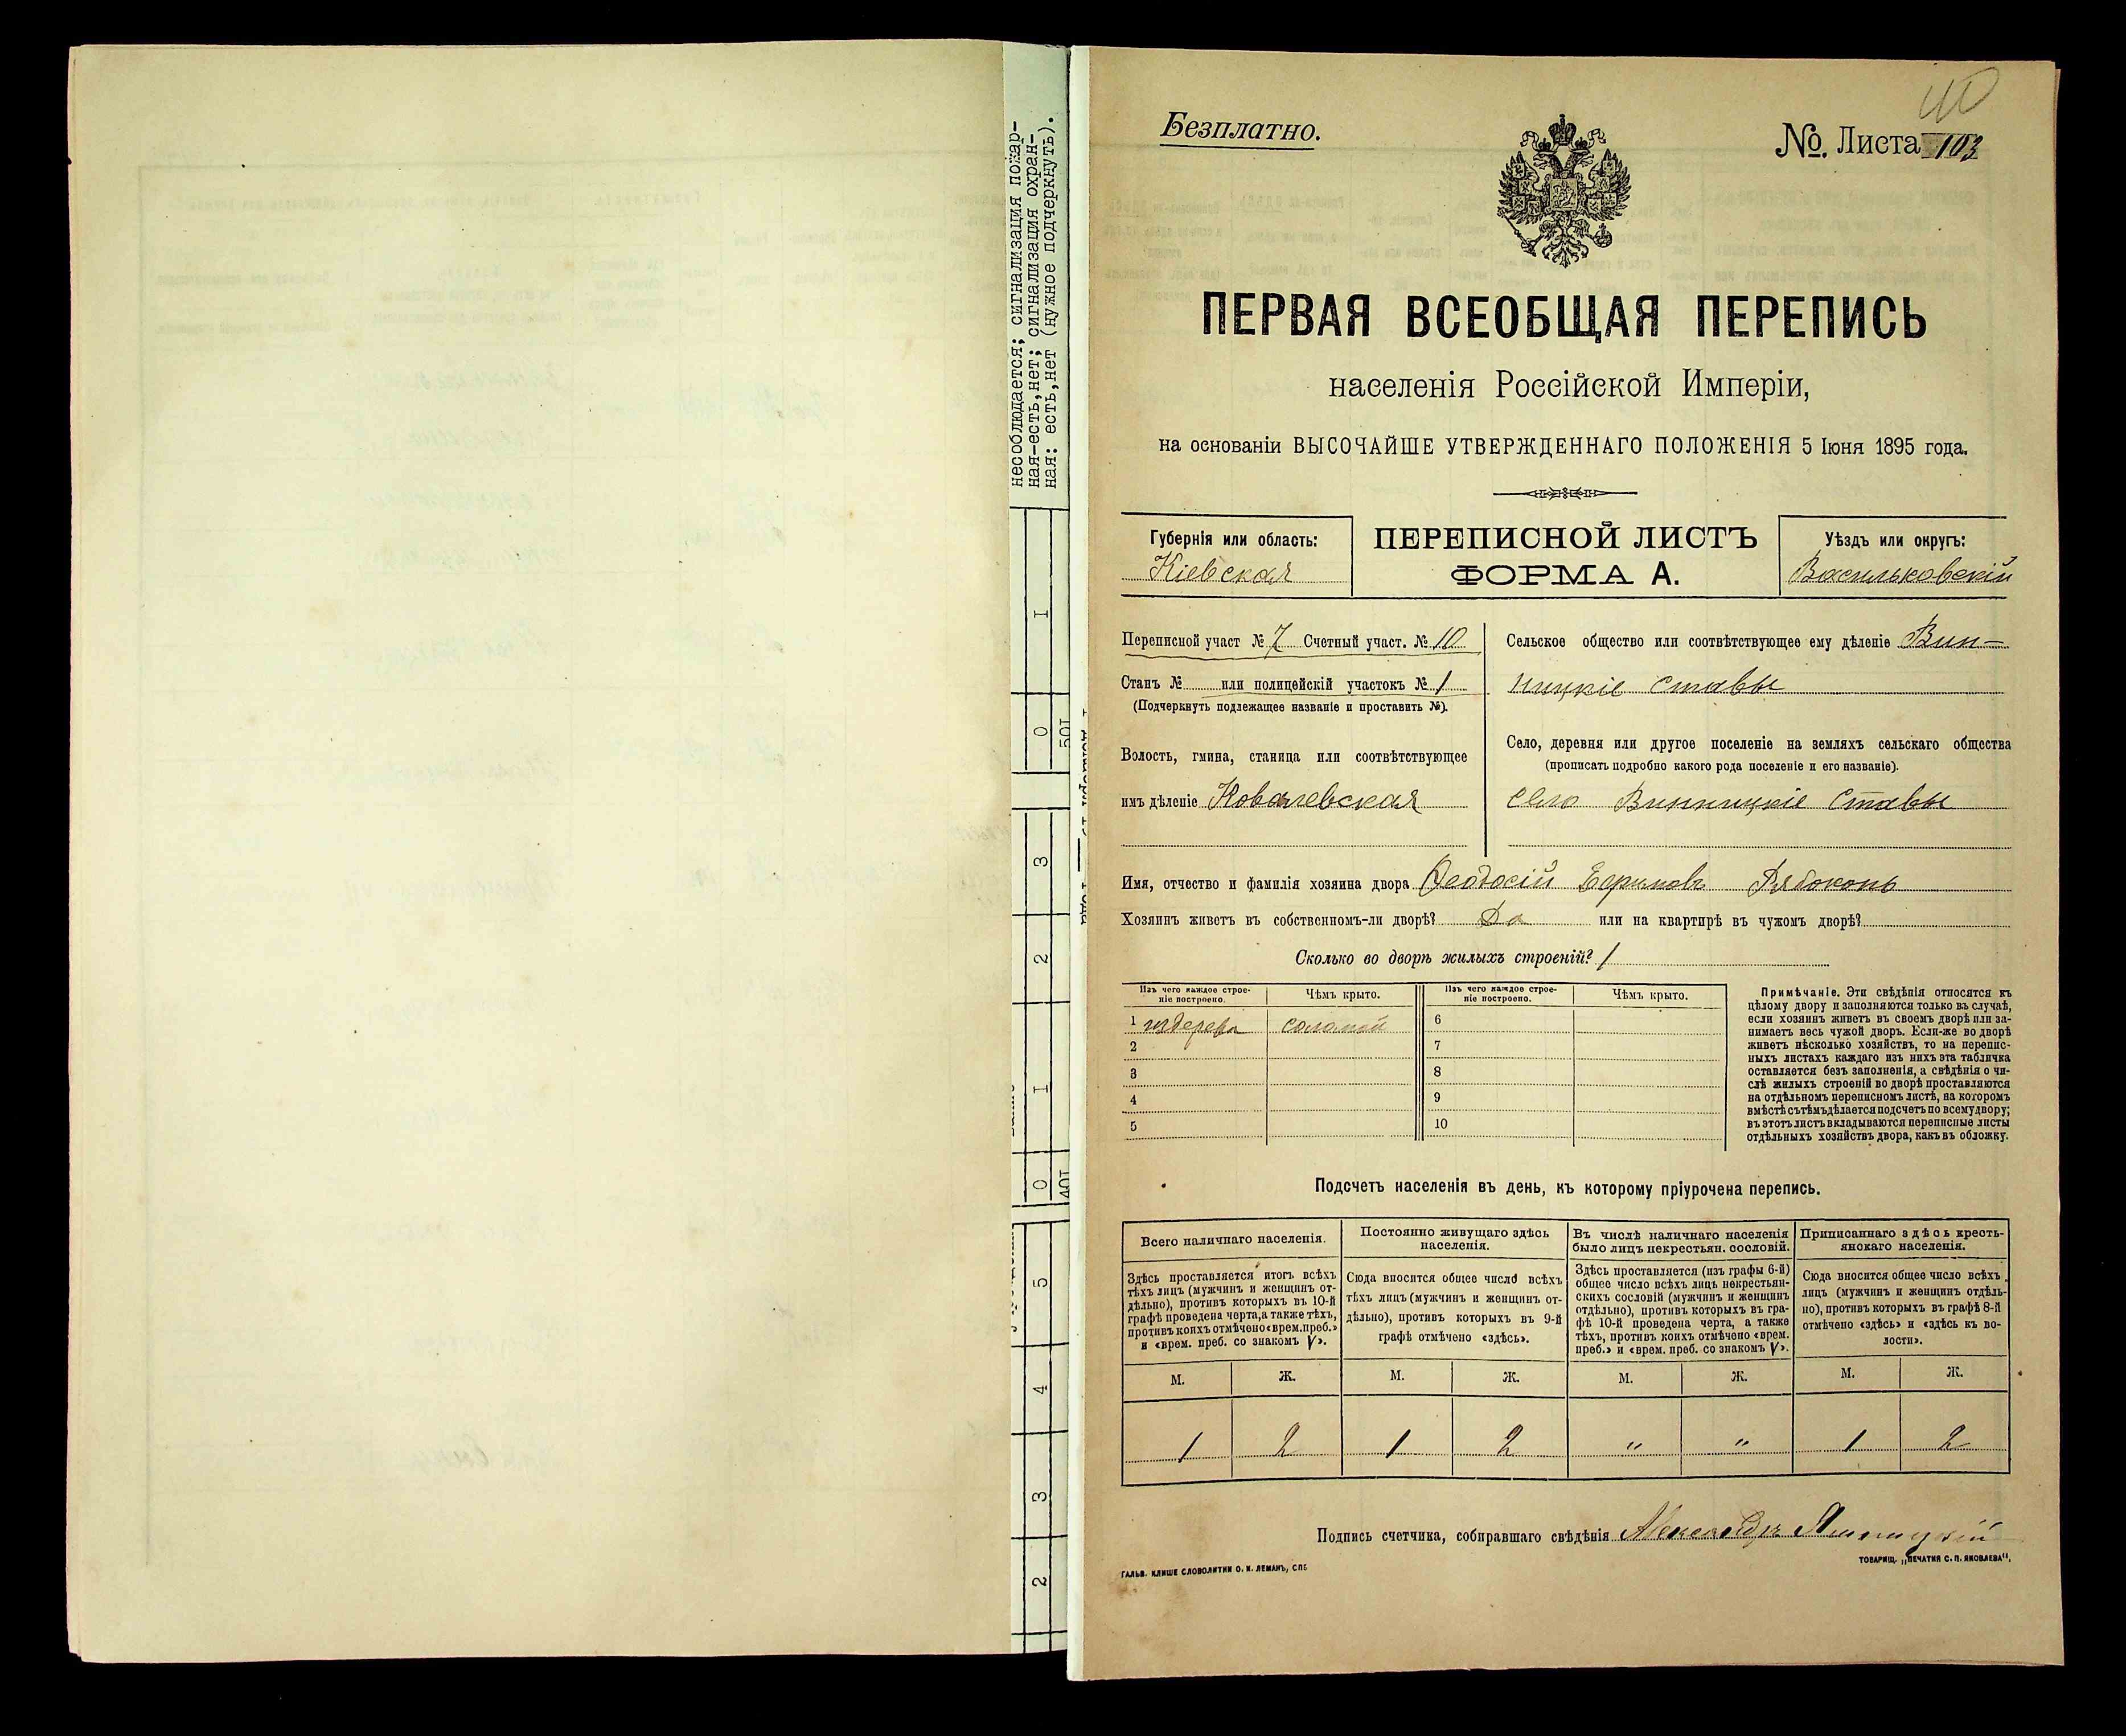 несоблюдается; сигнализация пожар-
ная-есть,нет; сигнализация охран-
ная: есть,нет (нужное подчеркнуть).
Безплатно.
№ Листа 103
ПЕРВАЯ ВСЕОБЩАЯ ПЕРЕПИСЬ
населенія Россійской Имперіи,
на основаніи ВЫСОЧАЙШЕ УТВЕРЖДЕННАГО ПОЛОЖЕНІЯ 5 Іюня 1895 года.
Губернія или область:
Кіевская
ПЕРЕПИСНОЙ ЛИСТЪ
ФОРМА А.
Уѣздъ или округъ:
Васильковскій
Переписной участ № 7 Счетный участ. № 10
Станъ № или полицейскій участокъ № 1
(Подчеркнуть подлежащее названіе и проставить №).
Волость, гмина, станица или соотвѣтствующее
имъ дѣленіе Ковалевская
Сельское общество или соотвѣтствующее ему дѣленіе Вин-
ницкіе Ставы
Село, деревня или другое поселеніе на земляхъ сельскаго общества
(прописать подробно какого рода поселеніе и его названіе).
село Винницкіе Ставы
Имя, отчество и фамилія хозяина двора Ѳеодосій Рябоконь
Хозяинъ живетъ въ собственномъ-ли дворѣ? Да или на квартирѣ въ чужомъ дворѣ?
Сколько во дворѣ жилыхъ строеній? 1
Изъ чего каждое строе-
ніе построено.
Чѣмъ крыто.
Изъ чего каждое строе-
ніе построено.
Чѣмъ крыто.
1 издерева соломой 6
2 7
3 8
4 9
5 10
Примѣчаніе. Эти свѣдѣнія относятся къ
цѣлому двору и заполняются только въ случаѣ,
если хозяинъ живетъ въ своемъ дворѣ или за-
нимаетъ весь чужой дворъ. Если-же во дворѣ
живетъ нѣсколько хозяйствъ, то на перепис-
ныхъ листахъ каждаго изъ нихъ эта табличка
оставляется безъ заполненія, а свѣдѣнія о чи-
слѣ жилыхъ строеній во дворѣ проставляются
на отдѣльномъ переписномъ листѣ, на которомъ
вмѣстѣ съ тѣмъ дѣлается подсчетъ по всему двору;
въ этотъ листъ вкладываются переписные листы
отдѣльныхъ хозяйствъ двора, какъ въ обложку.
Подсчетъ населенія въ день, къ которому пріурочена перепись.
Всего наличнаго населенія.
Здѣсь проставляется итогъ всѣхъ
тѣхъ лицъ (мужчинъ и женщинъ от-
дѣльно), противъ которыхъ въ 10-й
графѣ проведена черта, а также тѣхъ,
противъ коихъ отмѣчено «врем. преб.»
и «врем. преб. со знакомъ V».
Постоянно живущаго здѣсь
населенія.
Сюда вносится общее число всѣхъ
тѣхъ лицъ (мужчинъ и женщинъ от-
дѣльно), противъ которыхъ въ 9-й
графѣ отмѣчено «здѣсь».
Въ числѣ наличнаго населенія
было лицъ некрестьян. сословій.
Здѣсь проставляется (изъ графы 6-й)
общее число всѣхъ лицъ некрестьян-
скихъ сословій (мужчинъ и женщинъ
отдѣльно), противъ которыхъ въ гра-
фѣ 10-й проведена черта, а также
тѣхъ, противъ коихъ отмѣчено «врем.
преб.» и «врем. преб. со знакомъ V».
Приписаннаго здѣсь кресть-
янскаго населенія.
Сюда вносится общее число всѣхъ
лицъ (мужчинъ и женщинъ отдѣль-
но), противъ которыхъ въ графѣ 8-й
отмѣчено «здѣсь» и «здѣсь къ во-
лости».
М. Ж. М. Ж. М. Ж. М. Ж.
1 2 1 2 " " 1 2
Подпись счетчика, собиравшаго свѣдѣнія Александръ
ГАЛЬВ. КЛИШЕ СЛОВОЛИТНИ О. И. ЛЕМАНЪ, СПБ
ТОВАРИЩ. „ПЕЧАТНЯ С. П. ЯКОВЛЕВА".